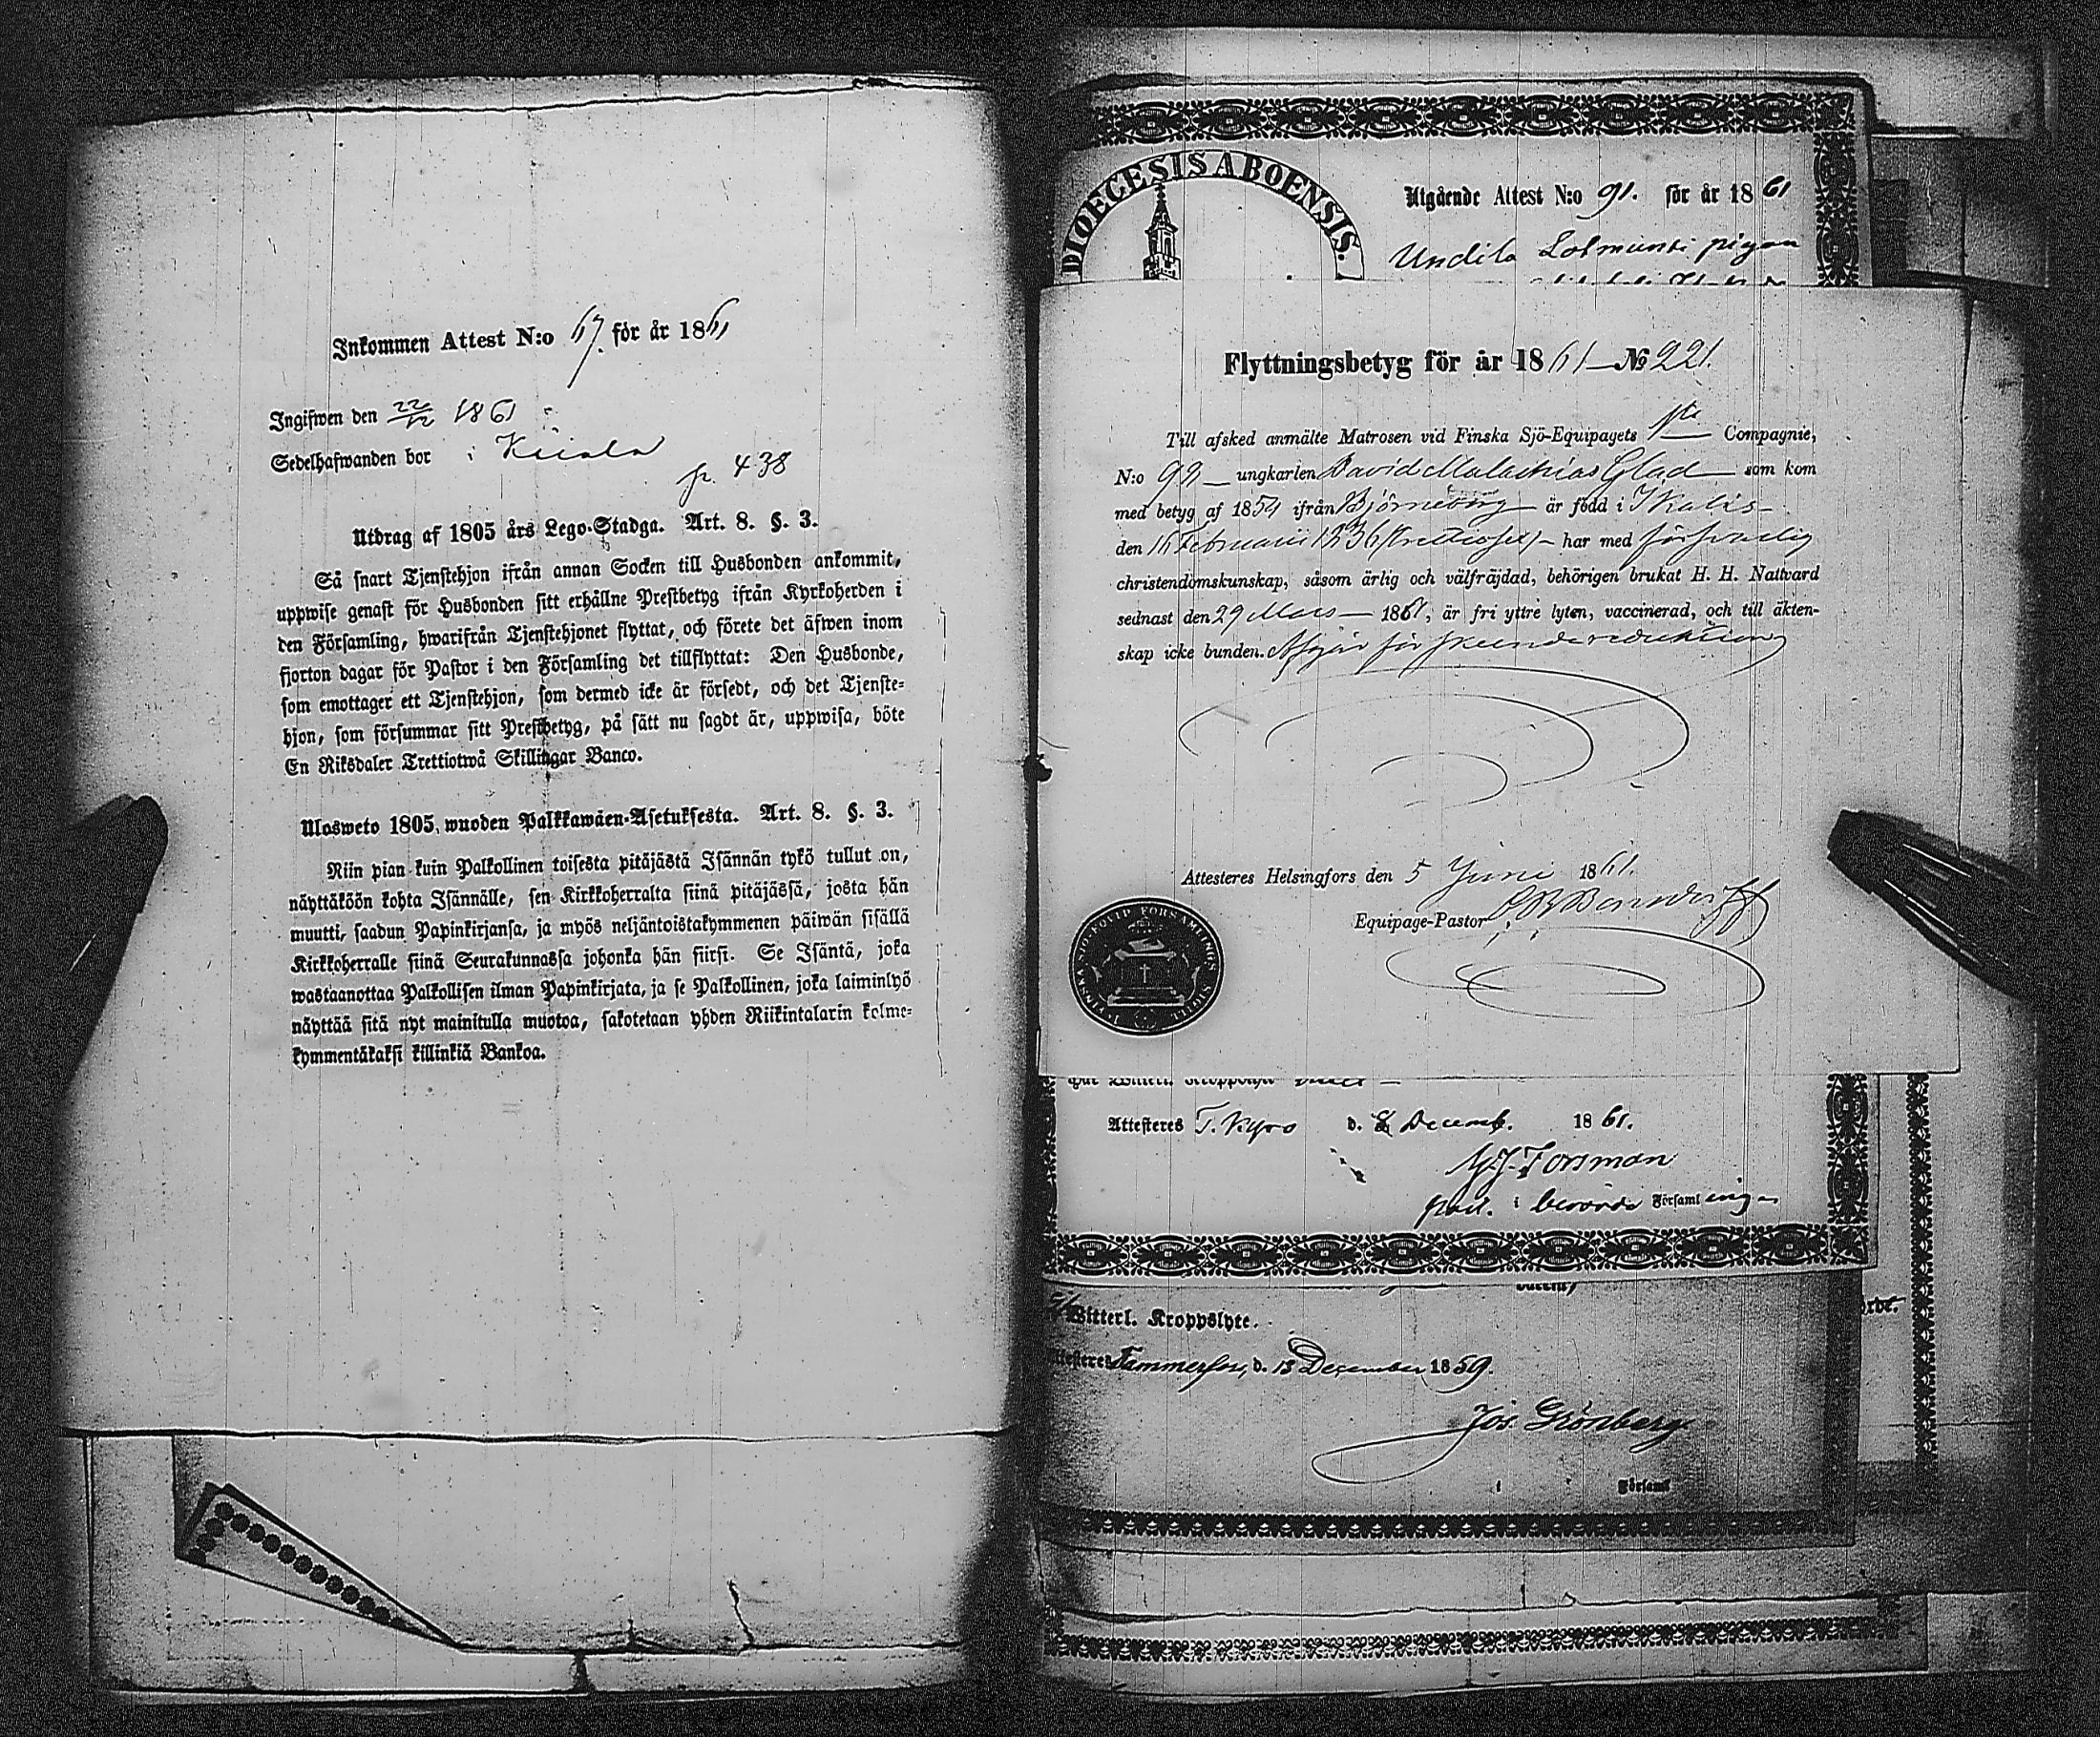 Inkommen Attest N:o 67. för år 1861
Ingifwen den 22/12 1861
Sedelhafwanden bor i
fr. 438
Utdrag af 1805 års Lego-Stadga. Art. 8. §. 3.
Så snart Tjenstehjon ifrån annan Socken till Husbonden ankommit,
uppwise genast för Husbonden sitt erhållne Prestbetyg ifrån Kyrkoherden i
den Församling, hwarifrån Tjenstehjonet flyttat, och förete det äfwen inom
fjorton dagar för Pastor i den Församling det tillflyttat: Den Husbonde,
som emottager ett Tjenstehjon, som dermed icke är försedt, och det Tjenste-
hjon, som försummar sitt Prestbetyg, på sätt nu sagdt är, uppwisa, böte
En Riksdaler Trettiotwå Skillingar Banco.
Ulosweto 1805. wuoden Palkkawäen-Asetuksesta. Art. 8. §. 3.
Niin pian kuin Palkollinen toisesta pitäjästä Isännän tykö tullut on,
näyttäköön kohta Isännälle, sen Kirkkoherralta siinä pitäjässä, josta hän
muutti, saadun Papinkirjansa, ja myös neljäntoistakymmenen päiwän sisällä
Kirkkoherralle siinä Seurakunnassa johonka hän siirsi. Se Isäntä, joka
wastaanottaa Palkollisen ilman Papinkirjata, ja se Palkollinen, joka laiminlyö
näyttää sitä nyt mainitulla muotoa, sakotetaan yhden Riikintalarin kolme-
kymmentäkaksi killinkiä Bankoa.
DIOECESIS ABOENSIS.
Utgående Attest N:o 91. för år 1861
pigan
Flyttningsbetyg för år 1861 — № 221.
Till afsked anmälte Matrosen vid Finska Sjö-Equipagets 1sta Compagnie,
N:o 92 — ungkarlen David Malachias Glad — som kom
med betyg af 1854 ifrån Björneborg — är född i Ikalis —
den 16 Februarii 1836 (trettiosex) — har med försvarlig
christendomskunskap, såsom ärlig och välfräjdad, behörigen brukat H. H. Nattvard
sednast den 29 Mars — 1861, är fri yttre lyten, vaccinerad, och till äkten-
skap icke bunden. Afgår för skeende reduktion
Attesteres Helsingfors den 5 Juni 1861.
Equipage-Pastor
Attesteres T. Kyro d. 8 Decemb. 1861.
Forsman
past. i berörde Församlingen
Witterl. Kroppslyte.
Attesteres Tammerfors, d. 13 December 1859.
Jos. Grönberg
i Församl